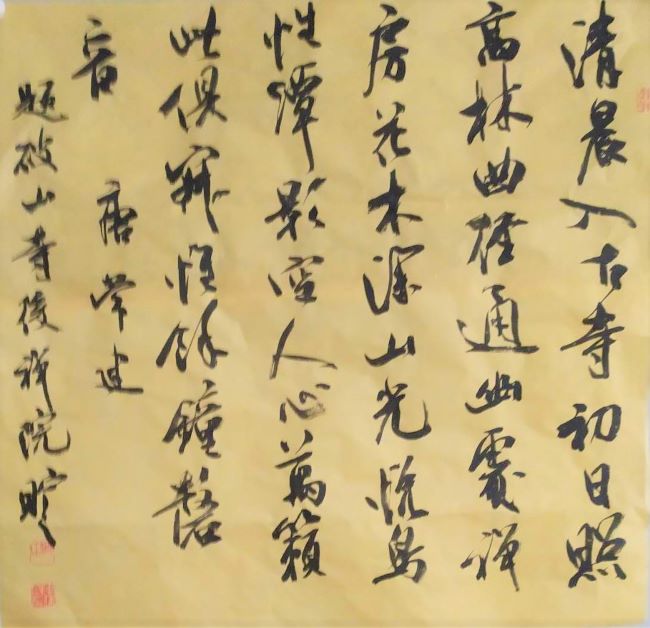 清晨入古寺初日照
高林曲径通幽處禅
房花木深山光悦鳥
性潭影空人心萬籟
此俱寂惟餘鐘磬
音
唐常建
题破山寺後禅院